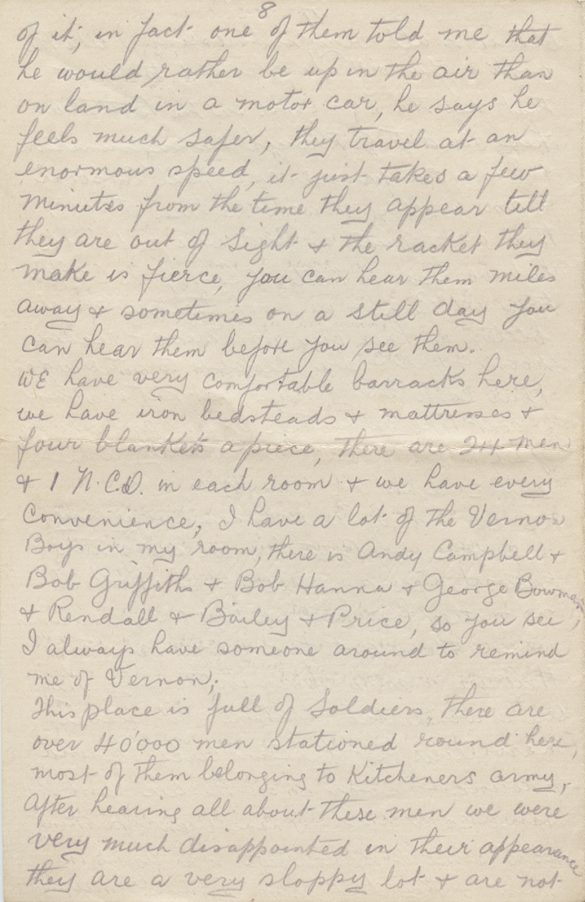 8
of it, in fact one of them told me that
he would rather be up in the air than
on land in a motor car, he says he
feels much safer, they travel at an
enormous speed, it just takes a few
minutes from the time they appear till
they are out of sight & the racket they
make is fierce, you can hear them miles
away & sometimes on a still day you
can hear them before you see them.
WE have very comfortable barracks here,
we have iron bedsteads & mattresses &
four blankets apiece, there are 24 men
& 1 N.C.O. in each room & we have every
convenience, I have a lot of the Vernon
Boys in my room, there is Andy Campbell &
Bob Griffiths & Bob Hanna & George Bowman,
& Rendall & Bailey & Price, so you see,
I always have someone around to remind
me of Vernon,
This place is full of Soldiers, there are
over 40'000 men stationed round here,
most of them belonging to Kitcheners army,
After hearing all about these men we were
very much disappointed in their appearance
they are a very sloppy lot & are not